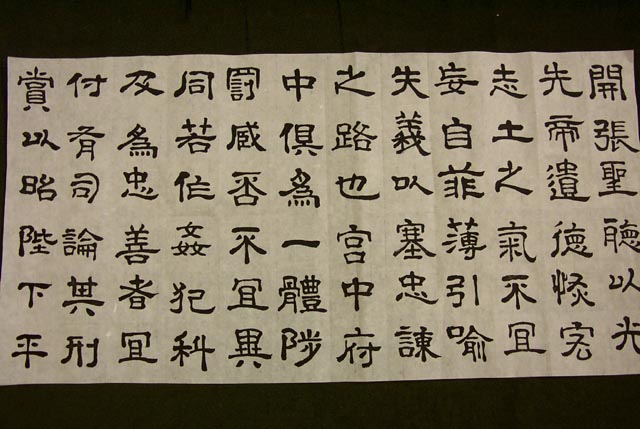 開張聖聽以光
先帝遺德恢宏
志士之氣不宜
妄自菲薄引喻
失義以塞忠諫
之路也宮中府
中俱爲一體陟
罰臧否不宜異
同若作姦犯科
及爲忠善者宜
付有司論其刑
賞以昭陛下平